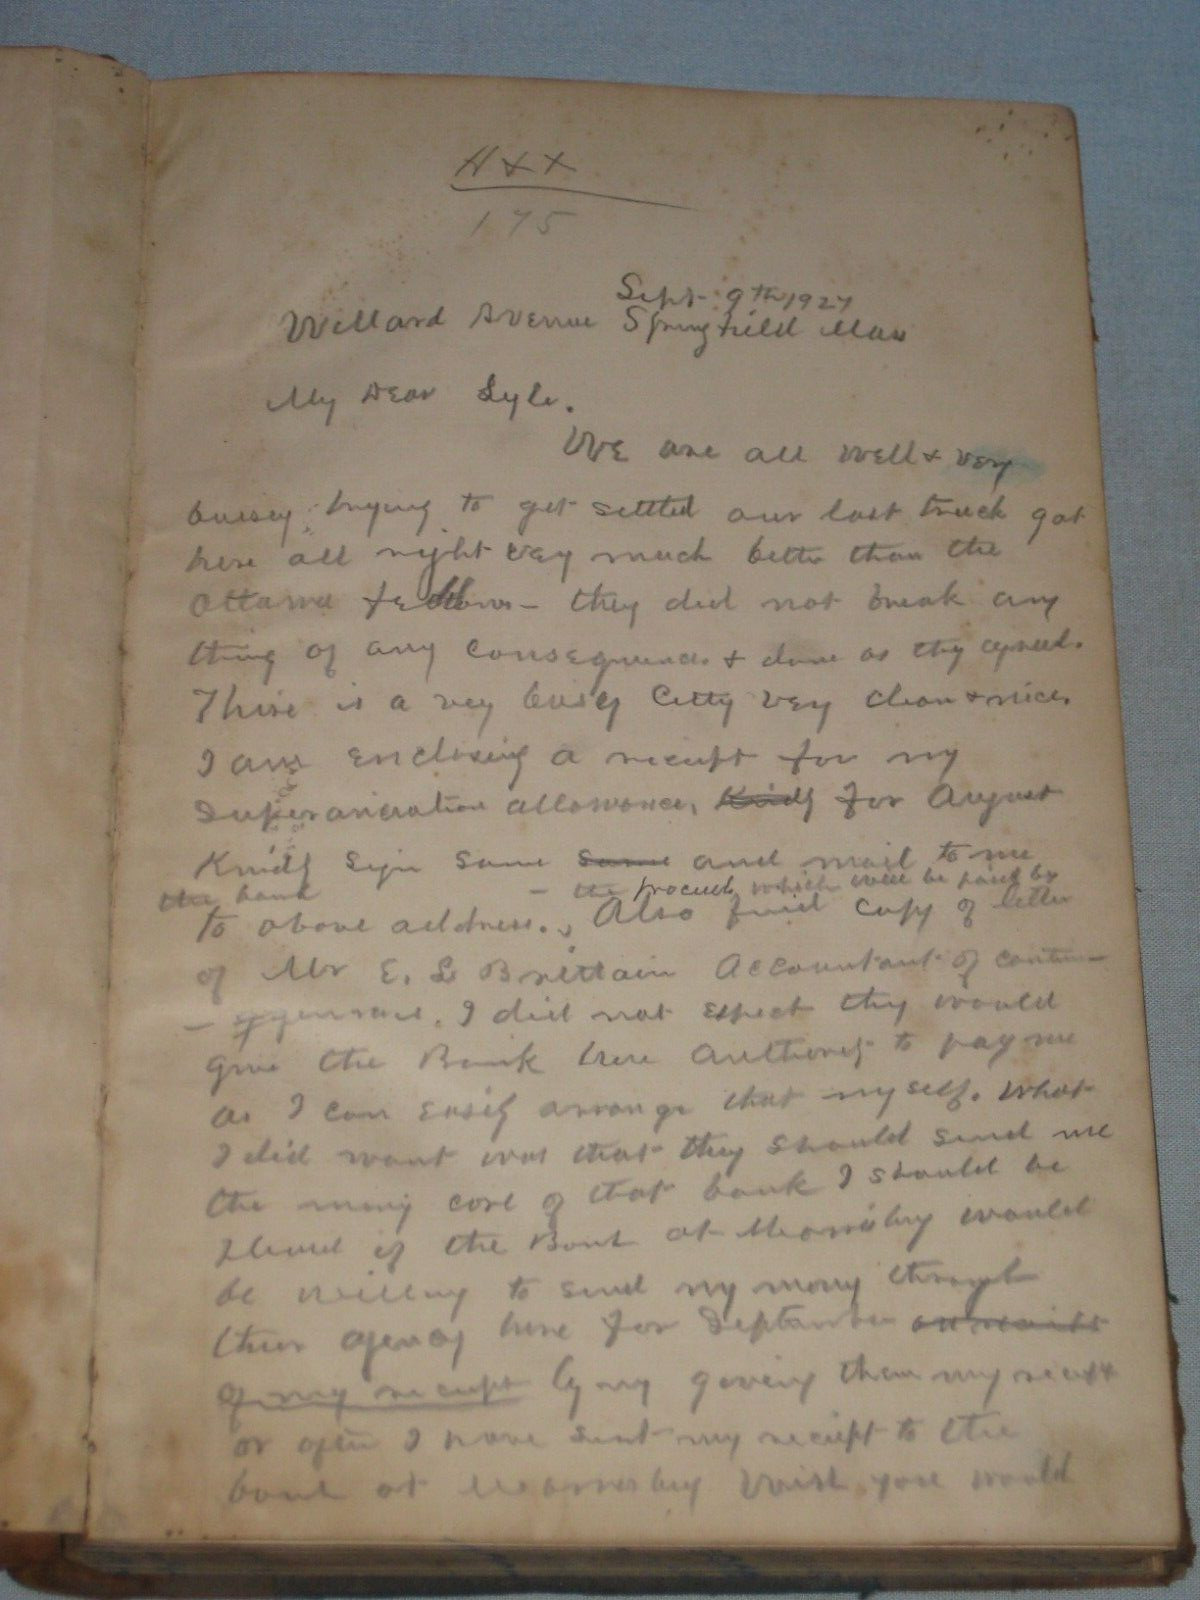 H + +
175
Sept 9th 1927
Willard Avenue Springfield Mass
My Dear Lyle.
We are all well + very
buisey trying to get settled our last truck got
here all right vey much better than the
Ottawa fellows - they did not break any
thing of any consequence. + done as they agreed.
This is a vey busy Citty vey clean + nice.
I am enclosing a reciept for my
Superanuation allowance, Kindly for August
Kindly sign same same and mail to me
the bank - the proceeds which will be paid by
to above address. Also find copy of letter
of Mr E. L Brittain Accountant of contin-
- I did not expect they would
give the Bank here authority to pay me
as I can easily arrange that myself. What
I did want was that they should send me
the mony care of that bank I should be
pleased if the Bank at would
be willing to send my mony through
their agency here for September
of my reciept by my giveing them my reciept
or after I have sent my reciept to the
bank at Wish you would